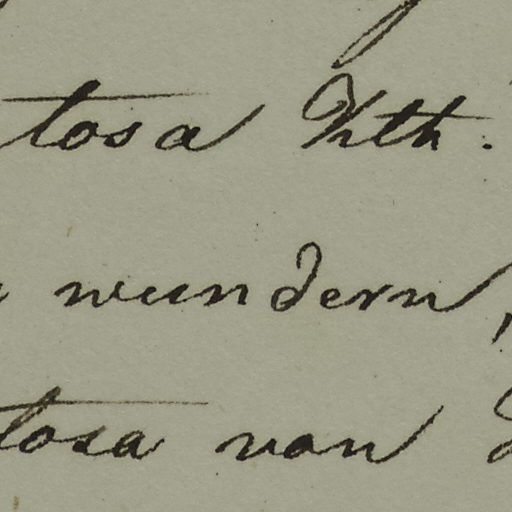 tosa Hth.
wundern,
tosa von